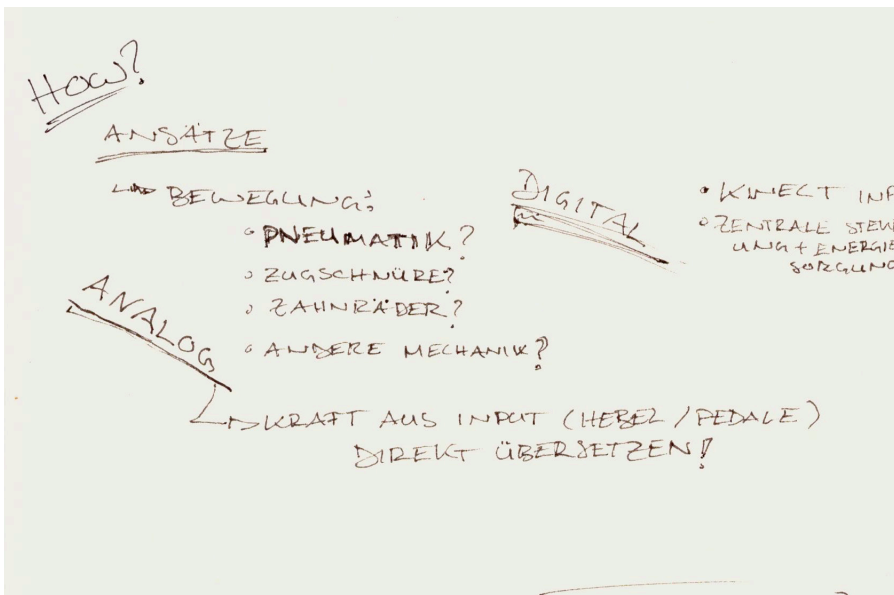 HOW?
ANSÄTZE
BEWEGUNG:
PNEUMATIK?
ZUGSCHNÜRE?
ZAHNRÄDER?
ANDERE MECHANIK?
ANALOG
KRAFT AUS INPUT (HEBEL/PEDALE)
DIREKT ÜBERSETZEN!
DIGITAL
KINECT INP
ZENTRALE STEU
UNG + ENERGIE
SORGUNG